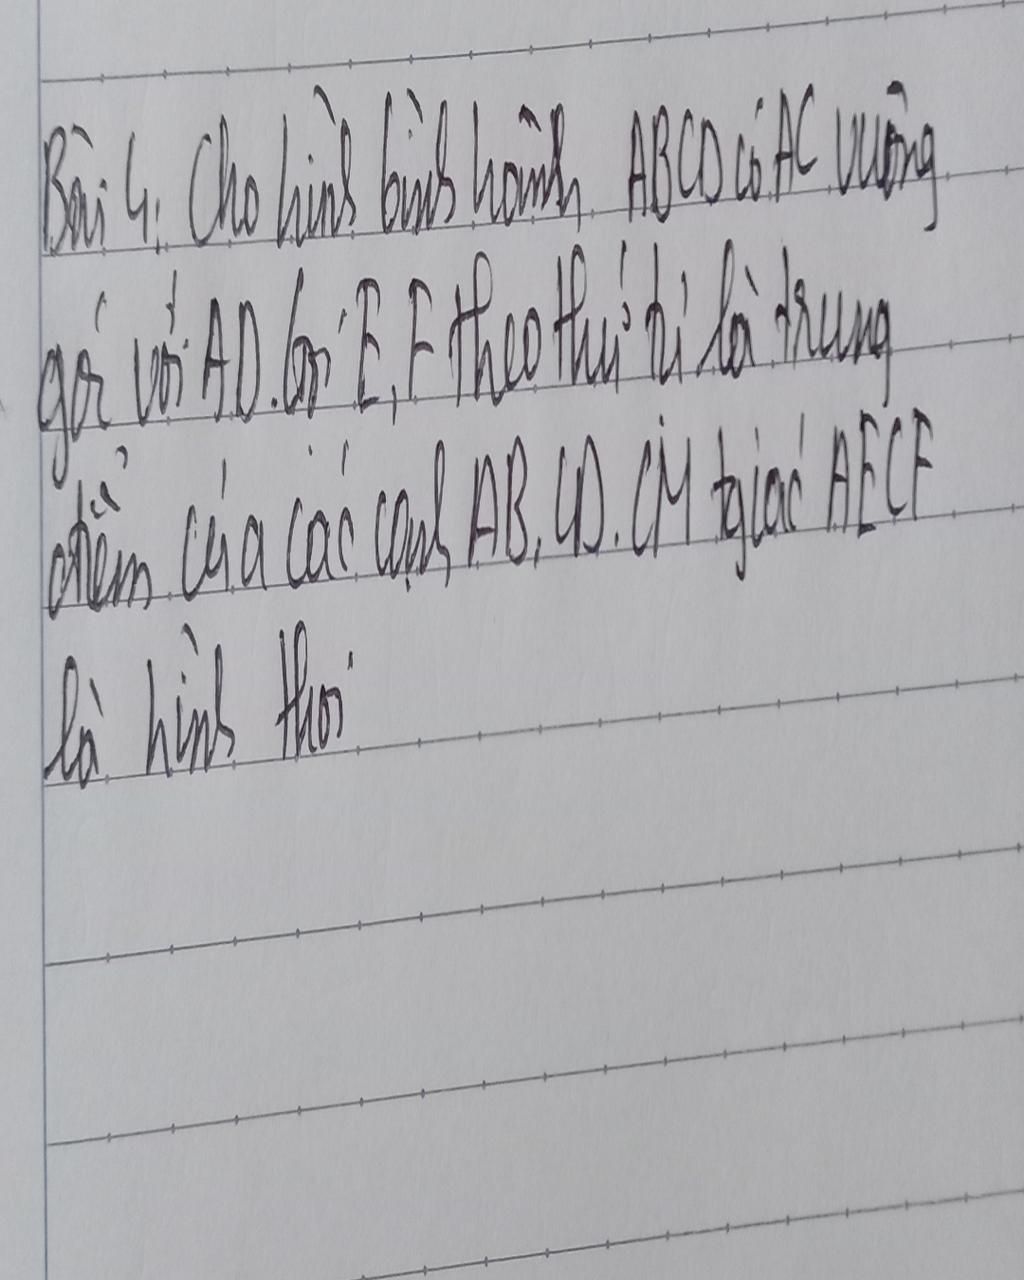 Bài 4: Cho hình bình hành ABCD có AC vuông
góc với AD. Gọi E, F theo thứ tự là trung
điểm của các cạnh AB, CD. CM tgiác AECF
là hình thoi